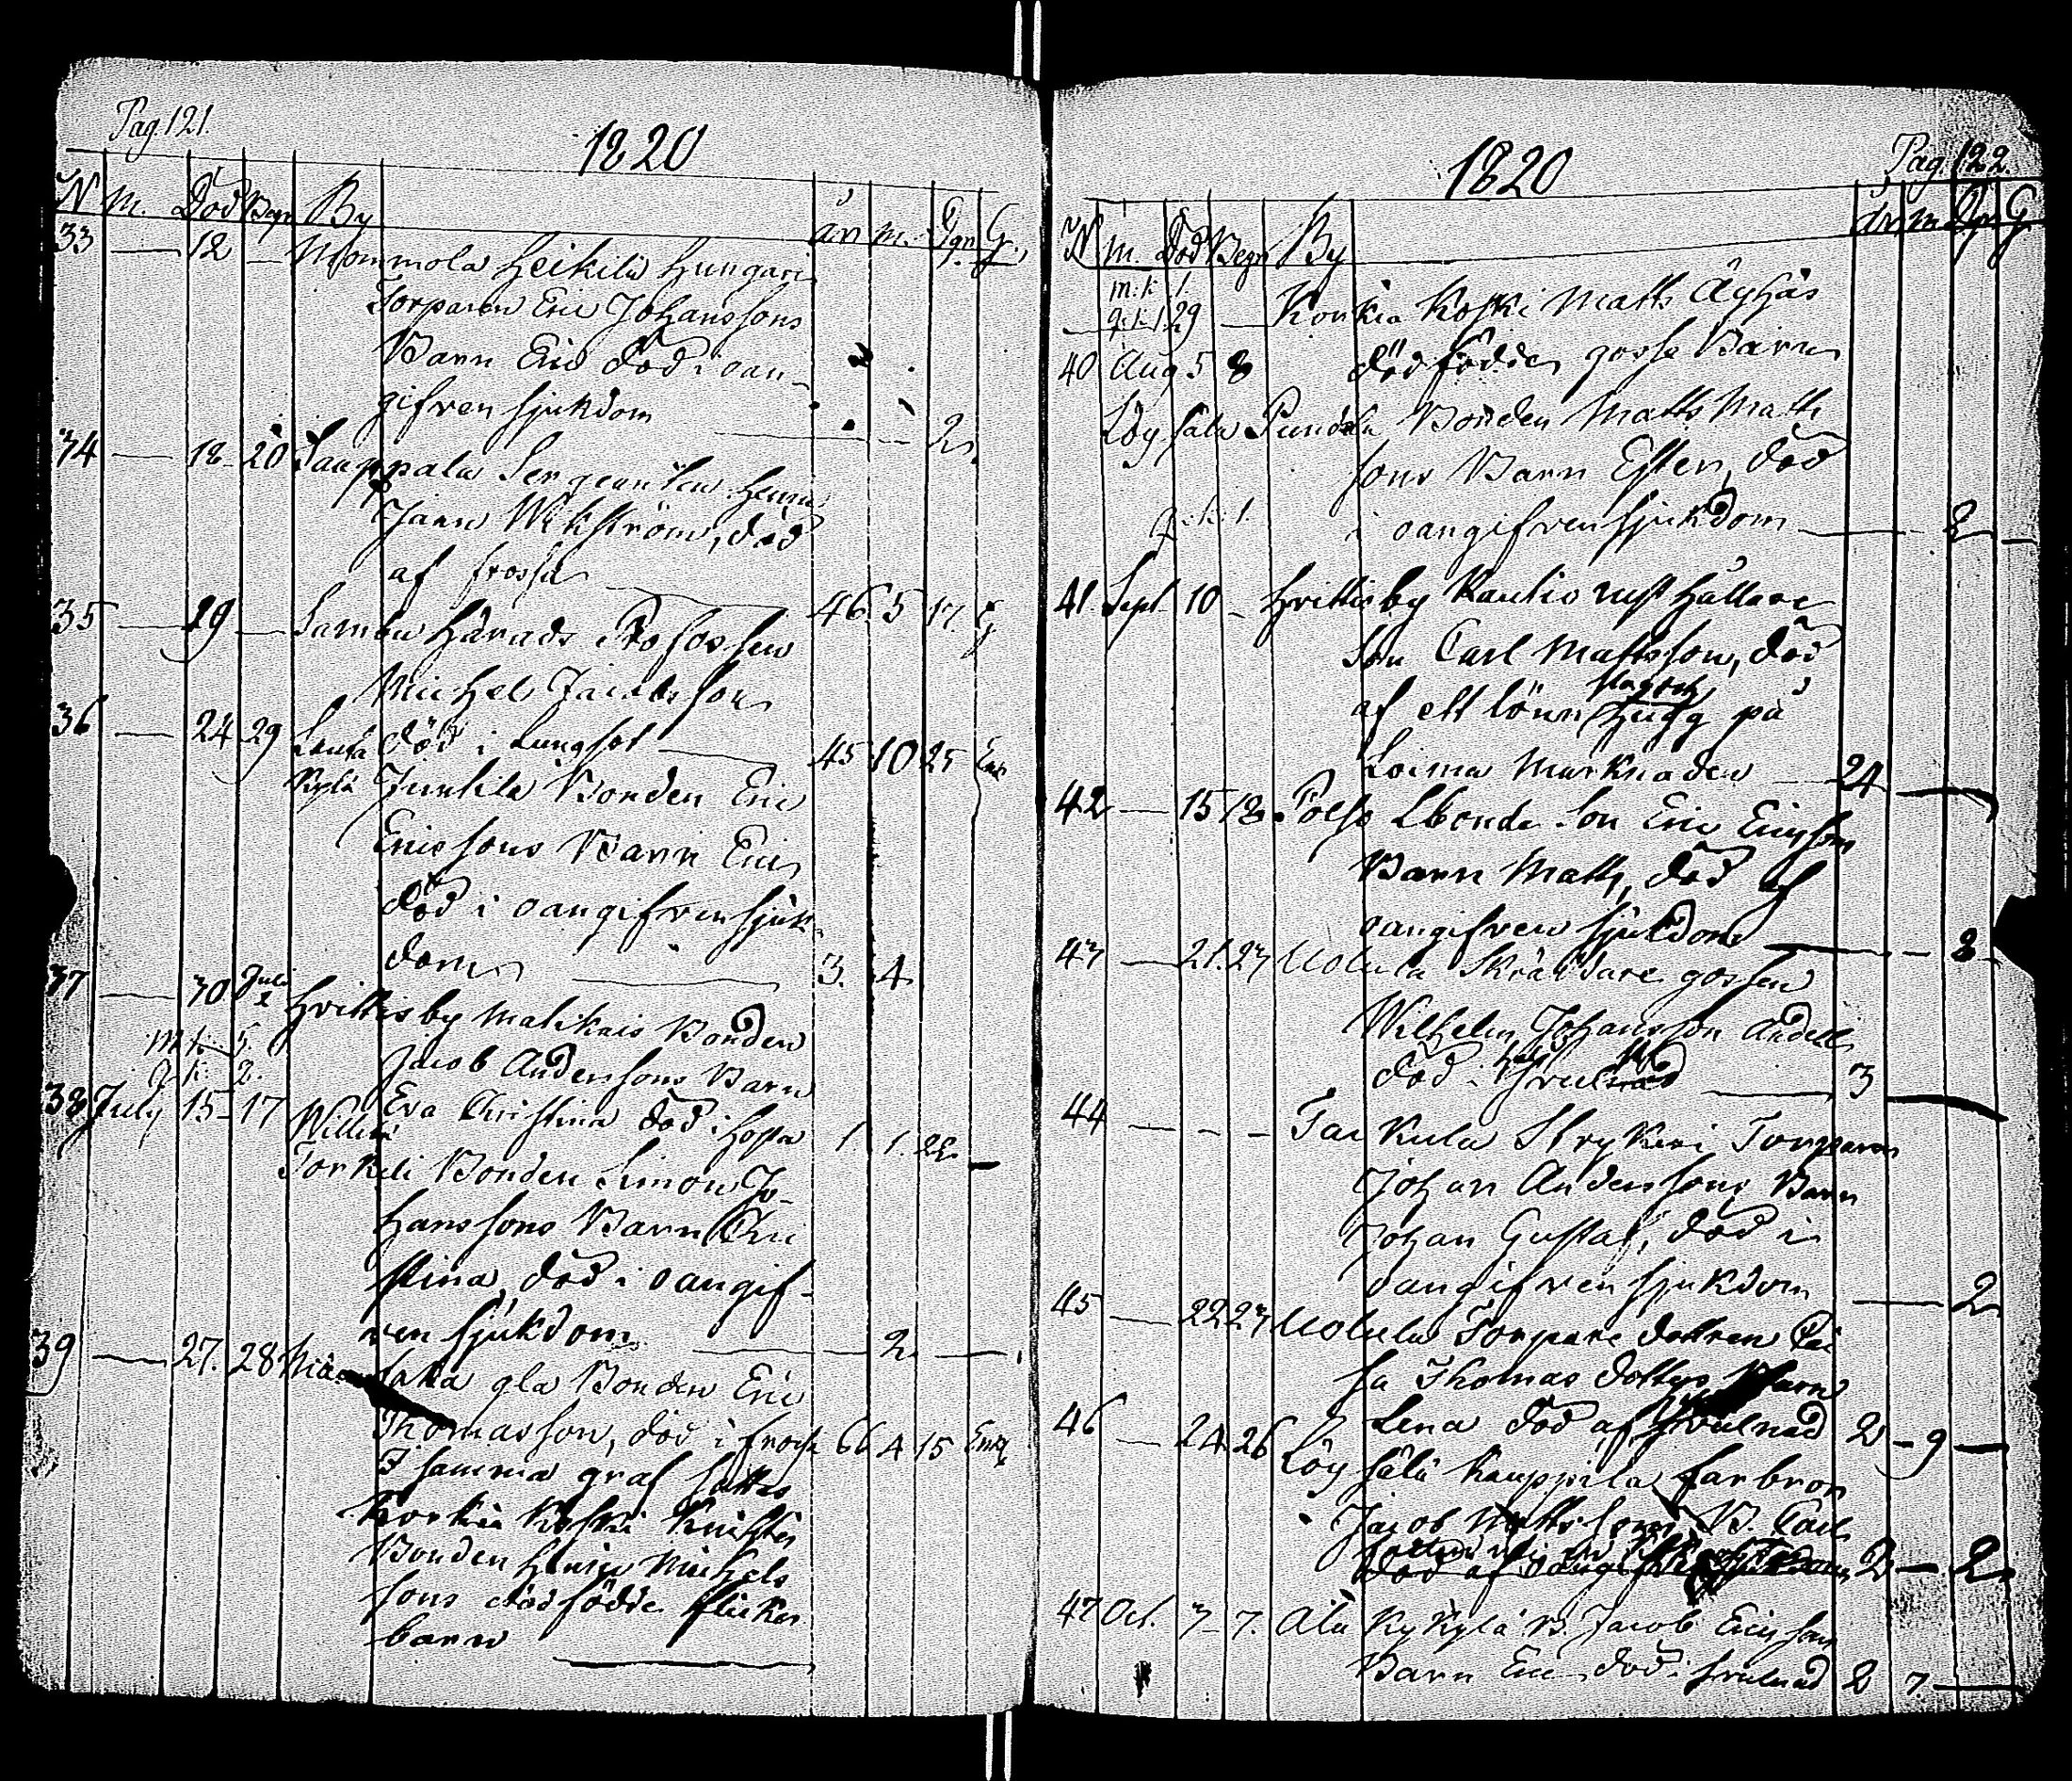 Pag. 121.
1820
N M. Död Begr By år m. Dgr. G.
33 — 18 — Mommola Heikilä Hungari
Torparen Eric Johanssons
Barn Eric död i oan-
gifven sjukdom — 2
34 — 18 — 20 Sauppala Sergeanten Herr
Wikström, död
af frossa — 46. 5 17. G
35 — 19 — Sambu Härads Profossen
Michel Jacobsson
död i Lungsot — 45 10 25 Enk
36 — 24 29
Kylä Junkila Bonden Eric
Ericssons Barn Eric
död i oangifven sjuk-
dom — 3. 4
37 — 30. Juli 2 Hvittisby Matikais Bonden
m.k. 5.
q.k. 2.
Jacob Anderssons Barn
Eva Christina död i hosta 1. 1. 22 —
38 July 15 — 17 Willilä
Torkeli Bonden Simon Jo-
hanssons Barn Chri
stina, död i oangif-
ven sjukdom — 2 —
39 — 27. 28
gla Bonden Eric
Thomasson, död i frossa 66 4 15 Enkl
I samma graf sattes
Korkia Koski Knistis
Bonden Henric Michels
sons dödfödde flicke
barn —
1820
Pag. 122.
N M. Död Begr By år m Dgr G
m.k. 1.
q.k. 1. 29 — Korkia Koski Matts Äyhäs
dödfödde gosse Barn
40 Aug 5 8
Löysälä Bonden Matts Matts
sons Barn Ester, död
q.k. 1. i oangifven sjukdom — 2 —
41 Sept 10 — Hvittisby Rautio rusthållare
Son Carl Mattsson, död
af ett lönn hugg på
Loima Marknaden — 24 —
42 — 15 18. Polso Bonde Son Eric Ericsson
Barn Matts, död af
oangifven sjukdom — 2
43 — 21. 23 Skräddare gossen
Wilhelm Johansson
död i — 3 —
44 — — — Taikula Strykeri Torparen
Johan Anderssons Barn
Johan Gustaf, död i
oangifven sjukdom — 2
45 — 22 23 Torpare dottren
sa Thomas dotters Barn
Lena död af svulnad 2 — 9 —
46 — 24. 26 Löysälä Kauppila farbron
Jacob Mattssons B. Carl
2 — 2
47 Oct. 7 — 7. Ala Kykylä B. Jacob Ericssons
Barn Eric död i svulnad 2 7 —